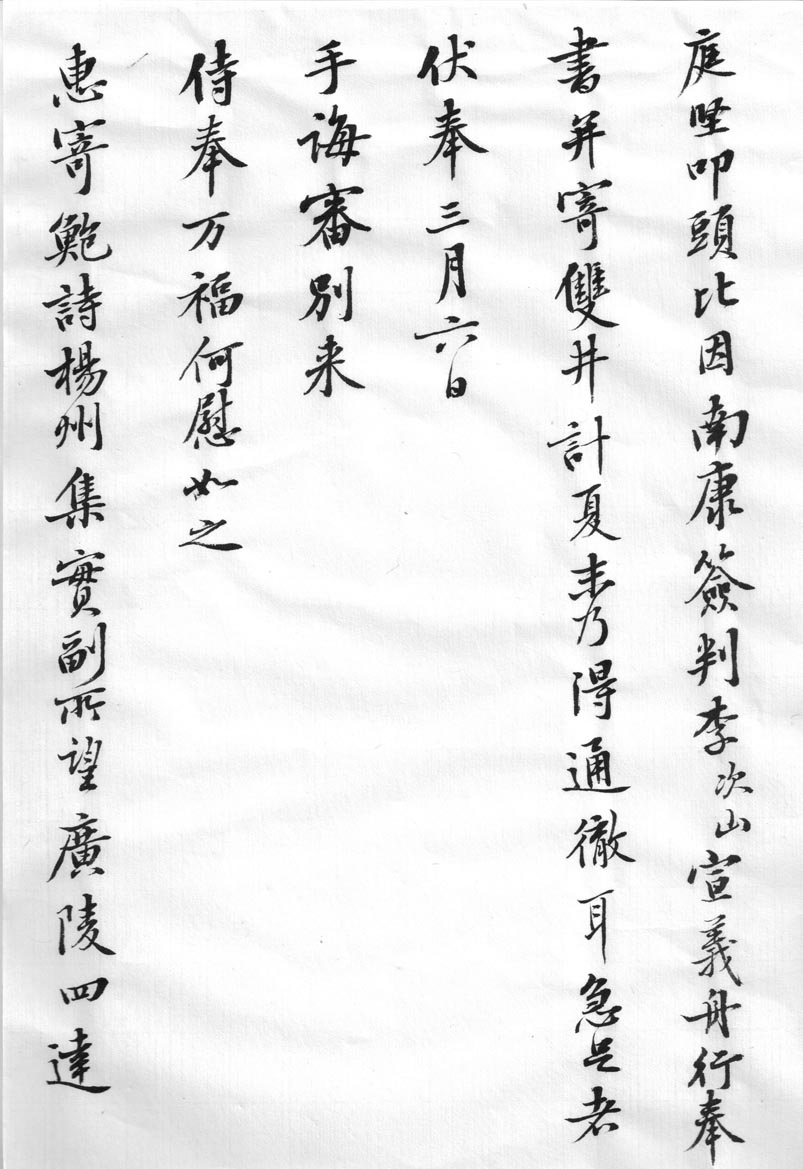 庭堅叩頭比因南康簽判李次山宣義舟行奉
書并寄雙井計夏末乃得通徹耳急足者
伏奉三月六日
手誨審別来
侍奉万福何慰如之
惠寄鮑詩楊州集實副所望廣陵四達